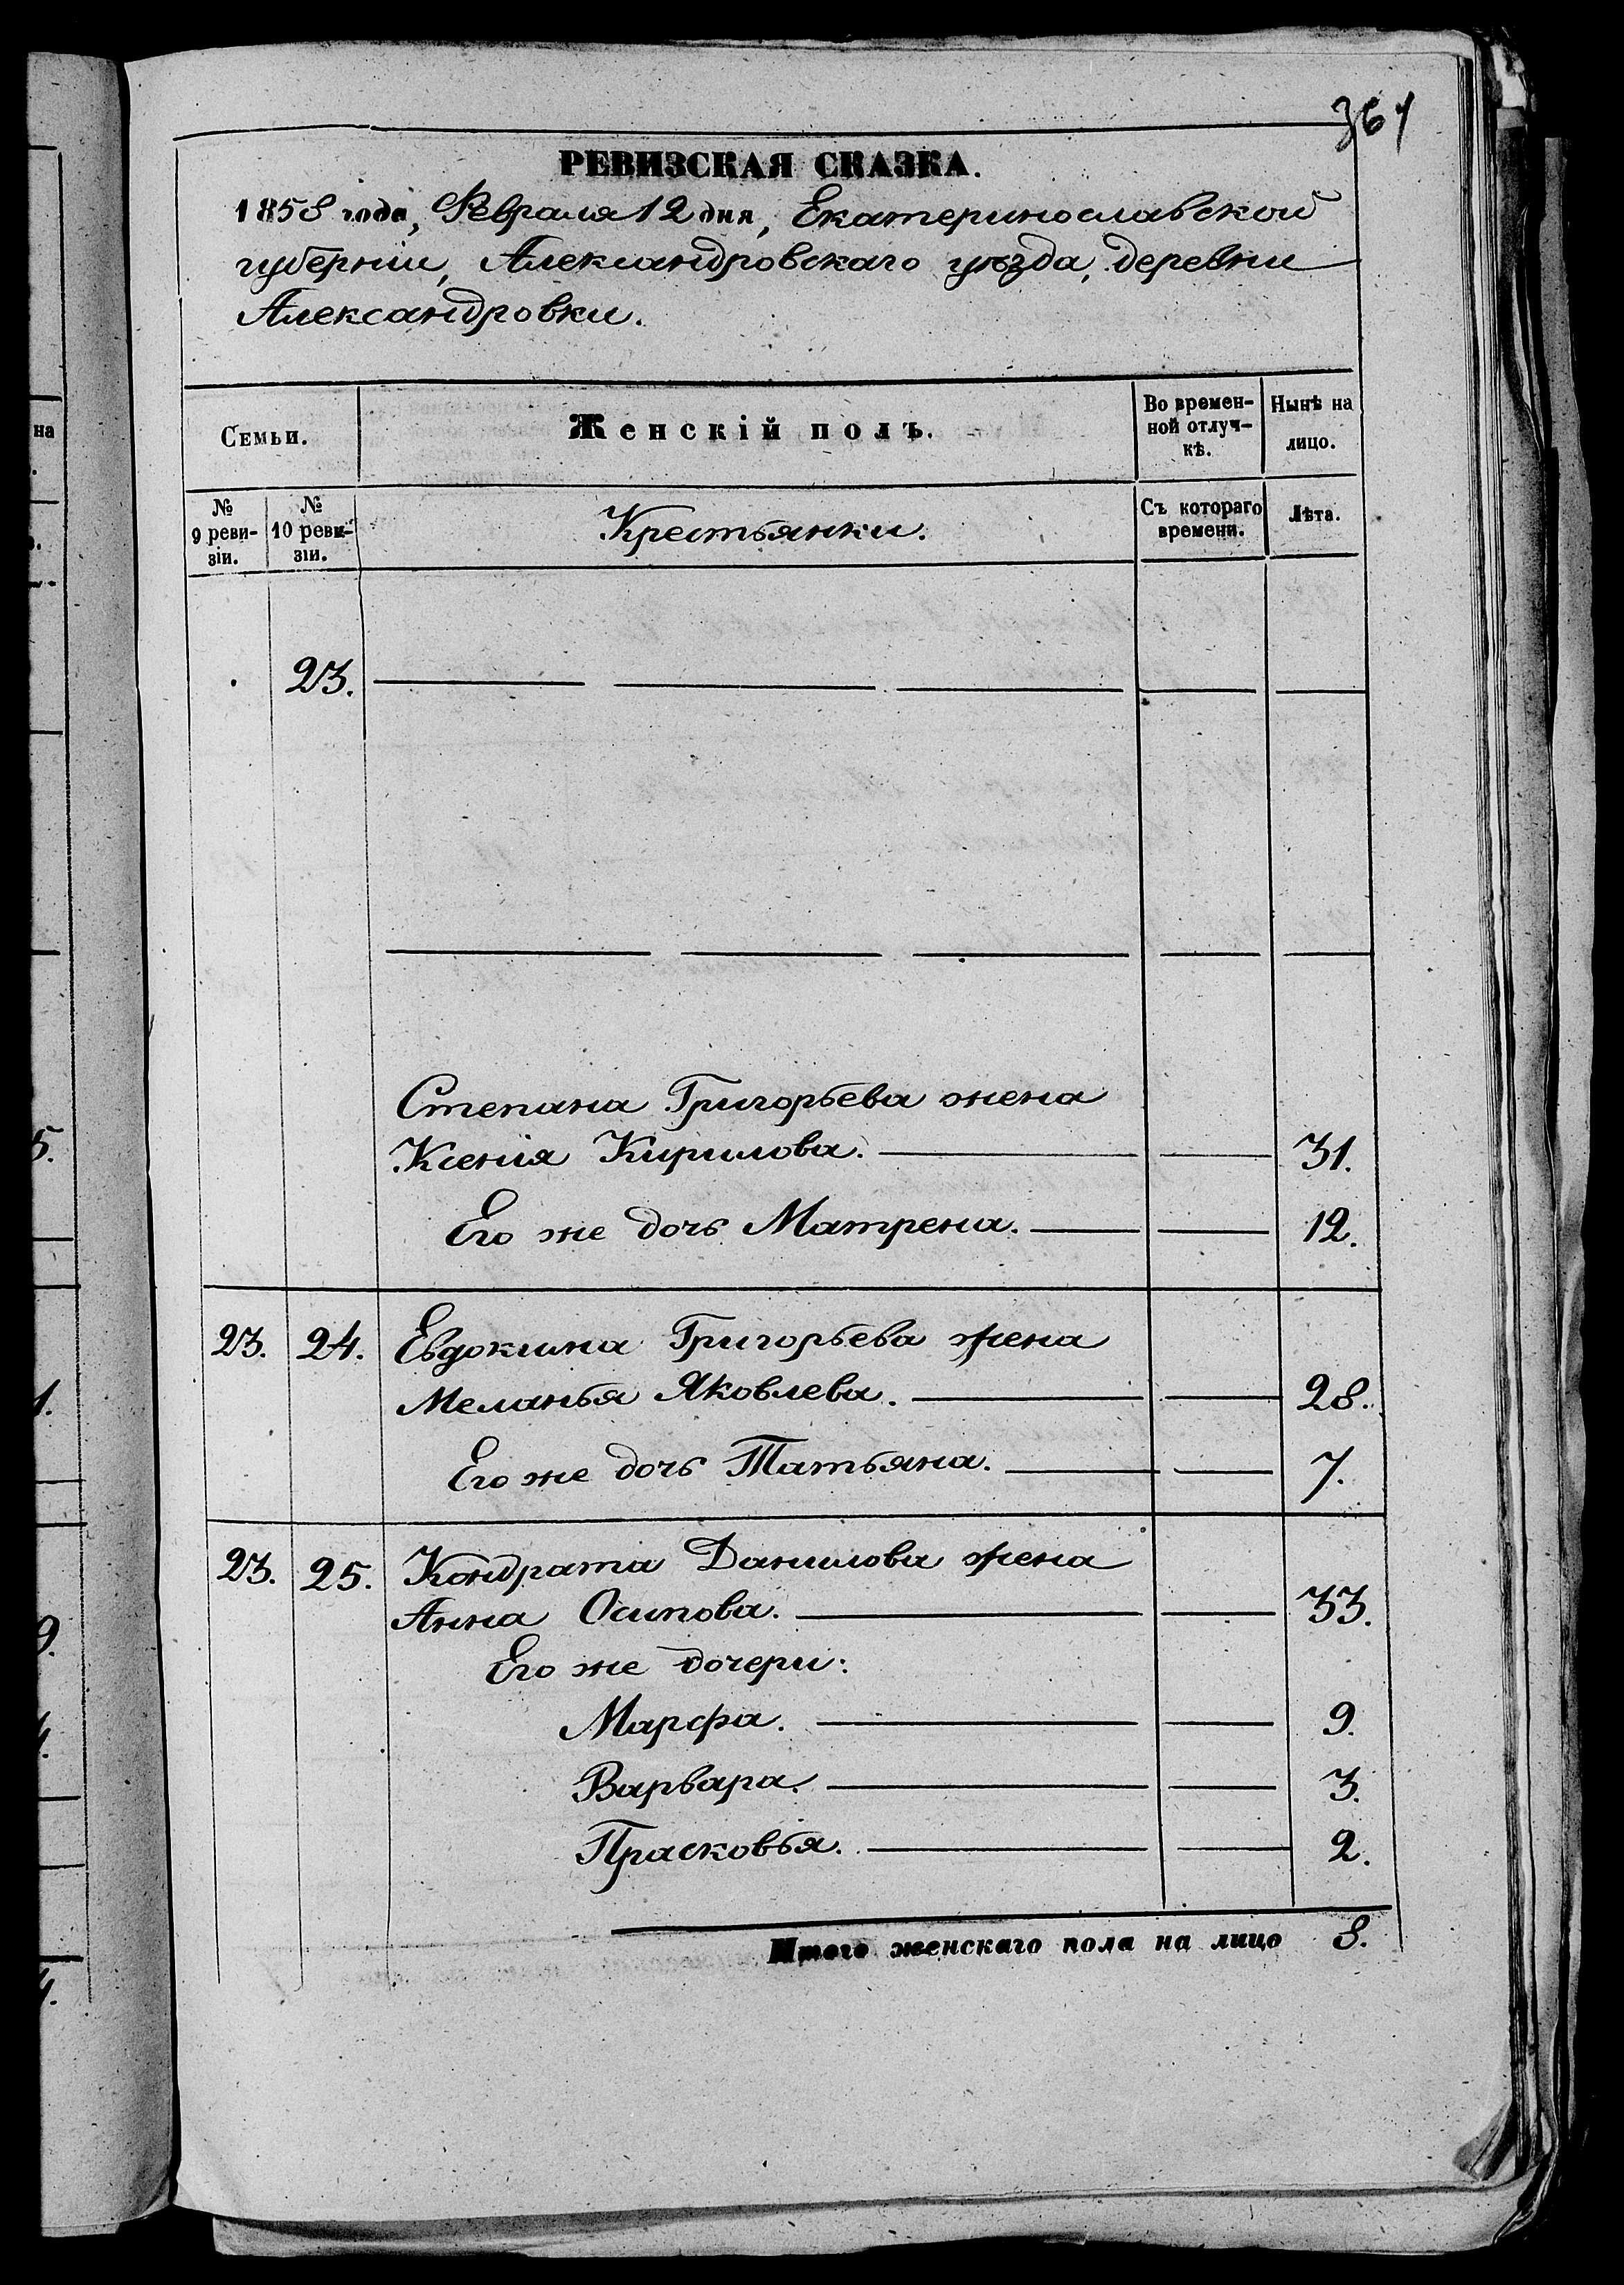 361
РЕВИЗСКАЯ СКАЗКА.
1858 года, Февраля 12 дня, Екатеринославской
губерніи, Александровскаго уѣзда, деревни
Александровки.
Семьи.
Женскій полъ.
Во времен-
ной отлуч-
кѣ.
Нынѣ на
лицо.
№
9 реви-
зіи.
№
10 реви-
зіи.
Крестьянки.
Съ котораго
времени.
Лѣта.
23.
Степана Григорьева жена
Ксенія Кирилова. 31.
Его же дочь Матрена. 12.
23. 24. Евдокима Григорьева жена
Меланья Яковлева. 28.
Его же дочь Татьяна. 7.
23. 25. Кондрата Данилова жена
Анна Осипова. 33.
Его же дочери:
Марфа. 9.
Варвара. 3.
Прасковья. 2.
Итого женскаго пола на лицо 8.